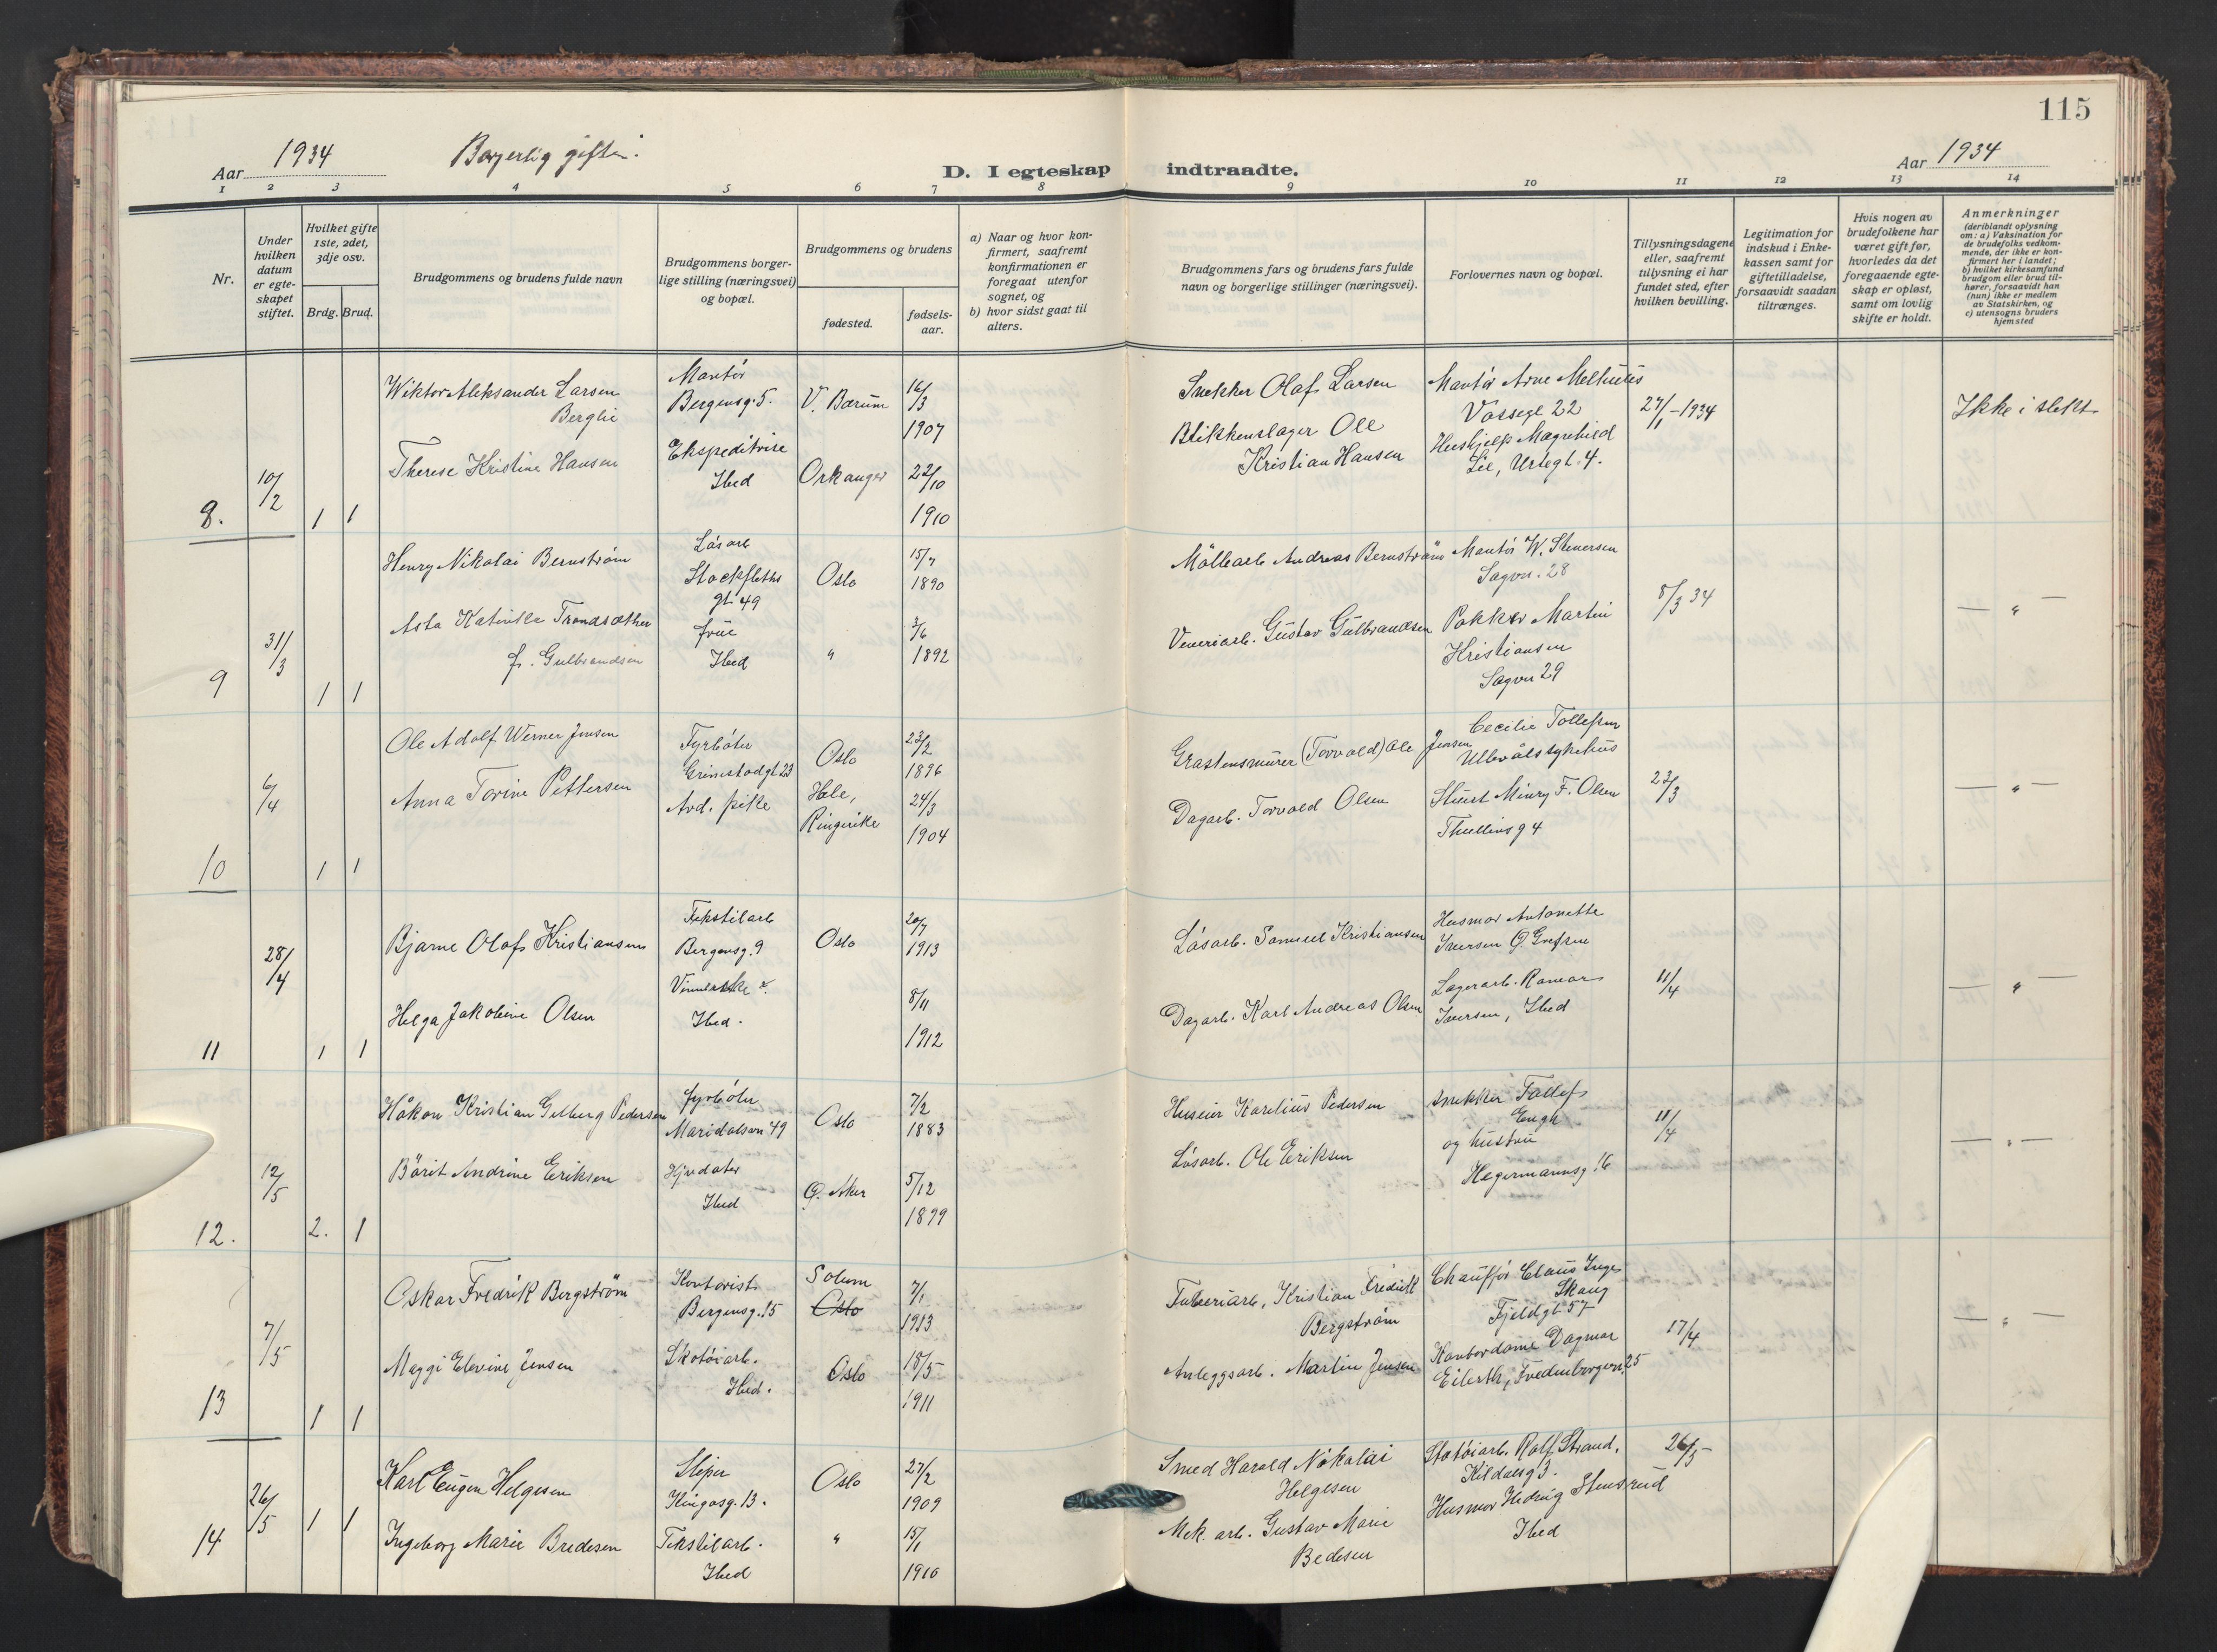 115
Aar 1934 Borgerlig gifte. D. I egteskap indtraadte. Aar 1934
1 2 3 4 5 6 7 8 9 10 11 12 13 14
Nr.
Under hvilken datum er egteskapet stiftet.
Hvilket gifte 1ste, 2det, 3dje osv.
Brdg. Brud.
Brudgommens og brudens fulde navn
Brudgommens borgerlige stilling (næringsvei) og bopæl.
Brudgommens og brudens
fødested.
fødselsaar.
a) Naar og hvor konfirmert, saafremt konfirmationen er foregaat utenfor sognet, og
b) hvor sidst gaat til alters.
Brudgommens fars og brudens fars fulde navn og borgerlige stillinger (næringsvei).
Forlovernes navn og bopæl.
Tillysningsdagene eller, saafremt tillysning ei har fundet sted, efter hvilken bevilling.
Legitimation for indskud i Enkekassen samt for giftetilladelse, forsaavidt saadan tiltrænges.
Hvis nogen av brudefolkene har været gift før, hvorledes da det foregaaende egteskap er opløst, samt om lovlig skifte er holdt.
Anmerkninger (deriblandt oplysning om: a) Vaksination for de brudefolks vedkommende, der ikke er konfirmert her i landet; b) hvilket kirkesamfund brudgom eller brud tilhører, forsaavidt han (hun) ikke er medlem av Statskirken, og c) utensogns bruders hjemsted
8. 10/2 1 1
Wiktor Aleksander Larsen Berglie
Montør Bergensg. 5.
V. Bærum
16/3 1907
Snekker Olaf Larsen
Montør Arne Melhuus Vossegt 22
27/1-1934
Ikke i slekt
Therese Kristine Hansen
Ekspeditrise Ibed
Orkanger
22/10 1910
Blikkenslager Ole Kristian Hansen
Hushjelp Magnhild Lie, Urtegt. 4.
9 31/3 1 1
Henry Nikolai Bernstrøm
Løsarb Stockfleths gt 49
Oslo
15/7 1890
Möllearb Andreas Bernstrøm
Montör W. Stenersen Sagvn. 28
8/3 34
— " —
Asta Katinka Trondsæther f. Gulbrandsen
frue Ibed
"
3/6 1892
Veveriarb. Gustav Gulbrandsen
Pakker Martin Kristiansen Sagvn 29
10 6/4 1 1
Ole Adolf Werner Jensen
Fyrböter Grimstadgt 23
Oslo
23/2 1896
Gråstensmurer (Torvald) Ole Jensen
Cecilie Tollefsen Ullevål sykehus
23/3
— " —
Anna Torine Pettersen
Arb. pike
Hole, Ringerike
24/3 1904
Dagarb. Torvald Olsen
Thullinsg 4
11 28/4 1 1
Bjarne Olaf Kristiansen
Tekstilarb Bergensg. 9
Oslo
20/7 1913
Løsarb. Samuel Kristiansen
Husmor Antonette Iversen Ö. Grefsen
11/4
— " —
Helga Jakobine Olsen
Ibed.
8/11 1912
Dagarb. Karl Andreas Olsen
Lagerarb. Ragnar Iversen, Ibed
12. 12/5 2. 1
Håkon Kristian Gelberg Pedersen
fyrböter Maridalsvn 49
Oslo
7/2 1883
Huseier Karelius Pedersen
snekker Tollef Engh
11/4
— " —
Börit Andrine Eriksen
Ibed
Ö. Aker
5/12 1899
Løsarb. Ole Eriksen
og hustru Hegermannsg 16
13 7/5 1 1
Oskar Fredrik Bergström
Kontorist Bergensg. 15
Solum
Oslo
7/1 1913
Kristian Fredrik Bergström
Chauffør Claus Inge Skaug Fjeldgt 57
17/4
— " —
Maggi Elevine Jensen
Skotöiarb. Ibed.
Oslo
18/5 1911
Anleggsarb. Martin Jensen
Kontordame Dagmar Eilerth, Fredensborgvn. 25
14 26/5 1 1
Karl Eugen Helgesen
Sliper Kingosg. 13.
Oslo
27/2 1909
Smed Harald Nikolai Helgesen
Skotöiarb. Rolf Strand, Kildalsg 3.
26/5-
Ingeborg Marie Bredesen
Tekstilarb. Ibed
"
15/1 1910
Mek. arb. Gustav Marie Bedesen
Husmor Hedvig Stensrud Ibed